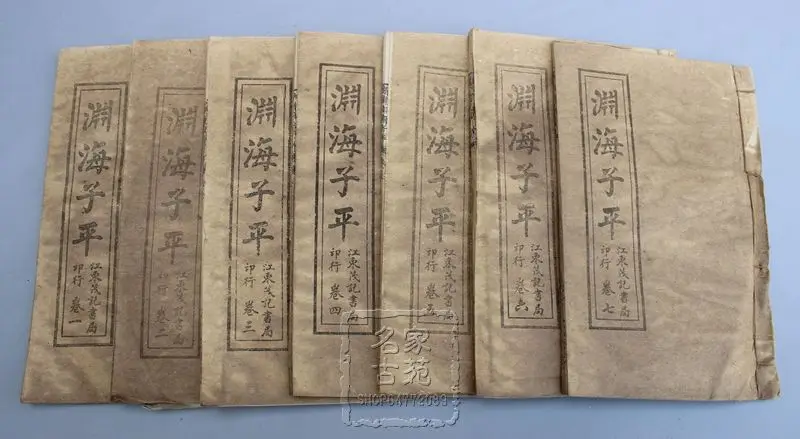 淵海子平
江東茂記書局
印行 卷一
淵海子平
江東茂記書局
印行 卷二
淵海子平
江東茂記書局
印行 卷三
淵海子平
江東茂記書局
印行 卷四
淵海子平
江東茂記書局
印行 卷五
淵海子平
江東茂記書局
印行 卷六
淵海子平
江東茂記書局
印行 卷七
名家
古苑
SHOP64772089